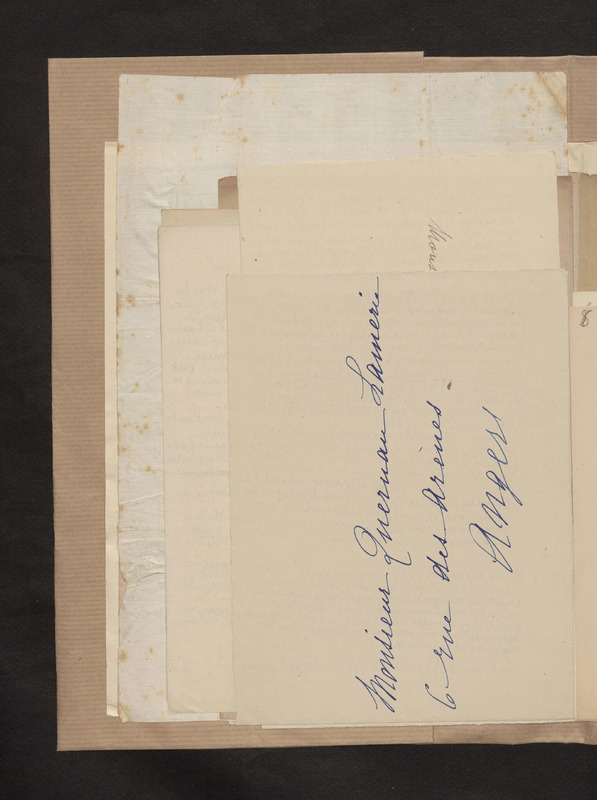 Monsieur Queruau Lamerie
6 rue des Arènes.
Angers